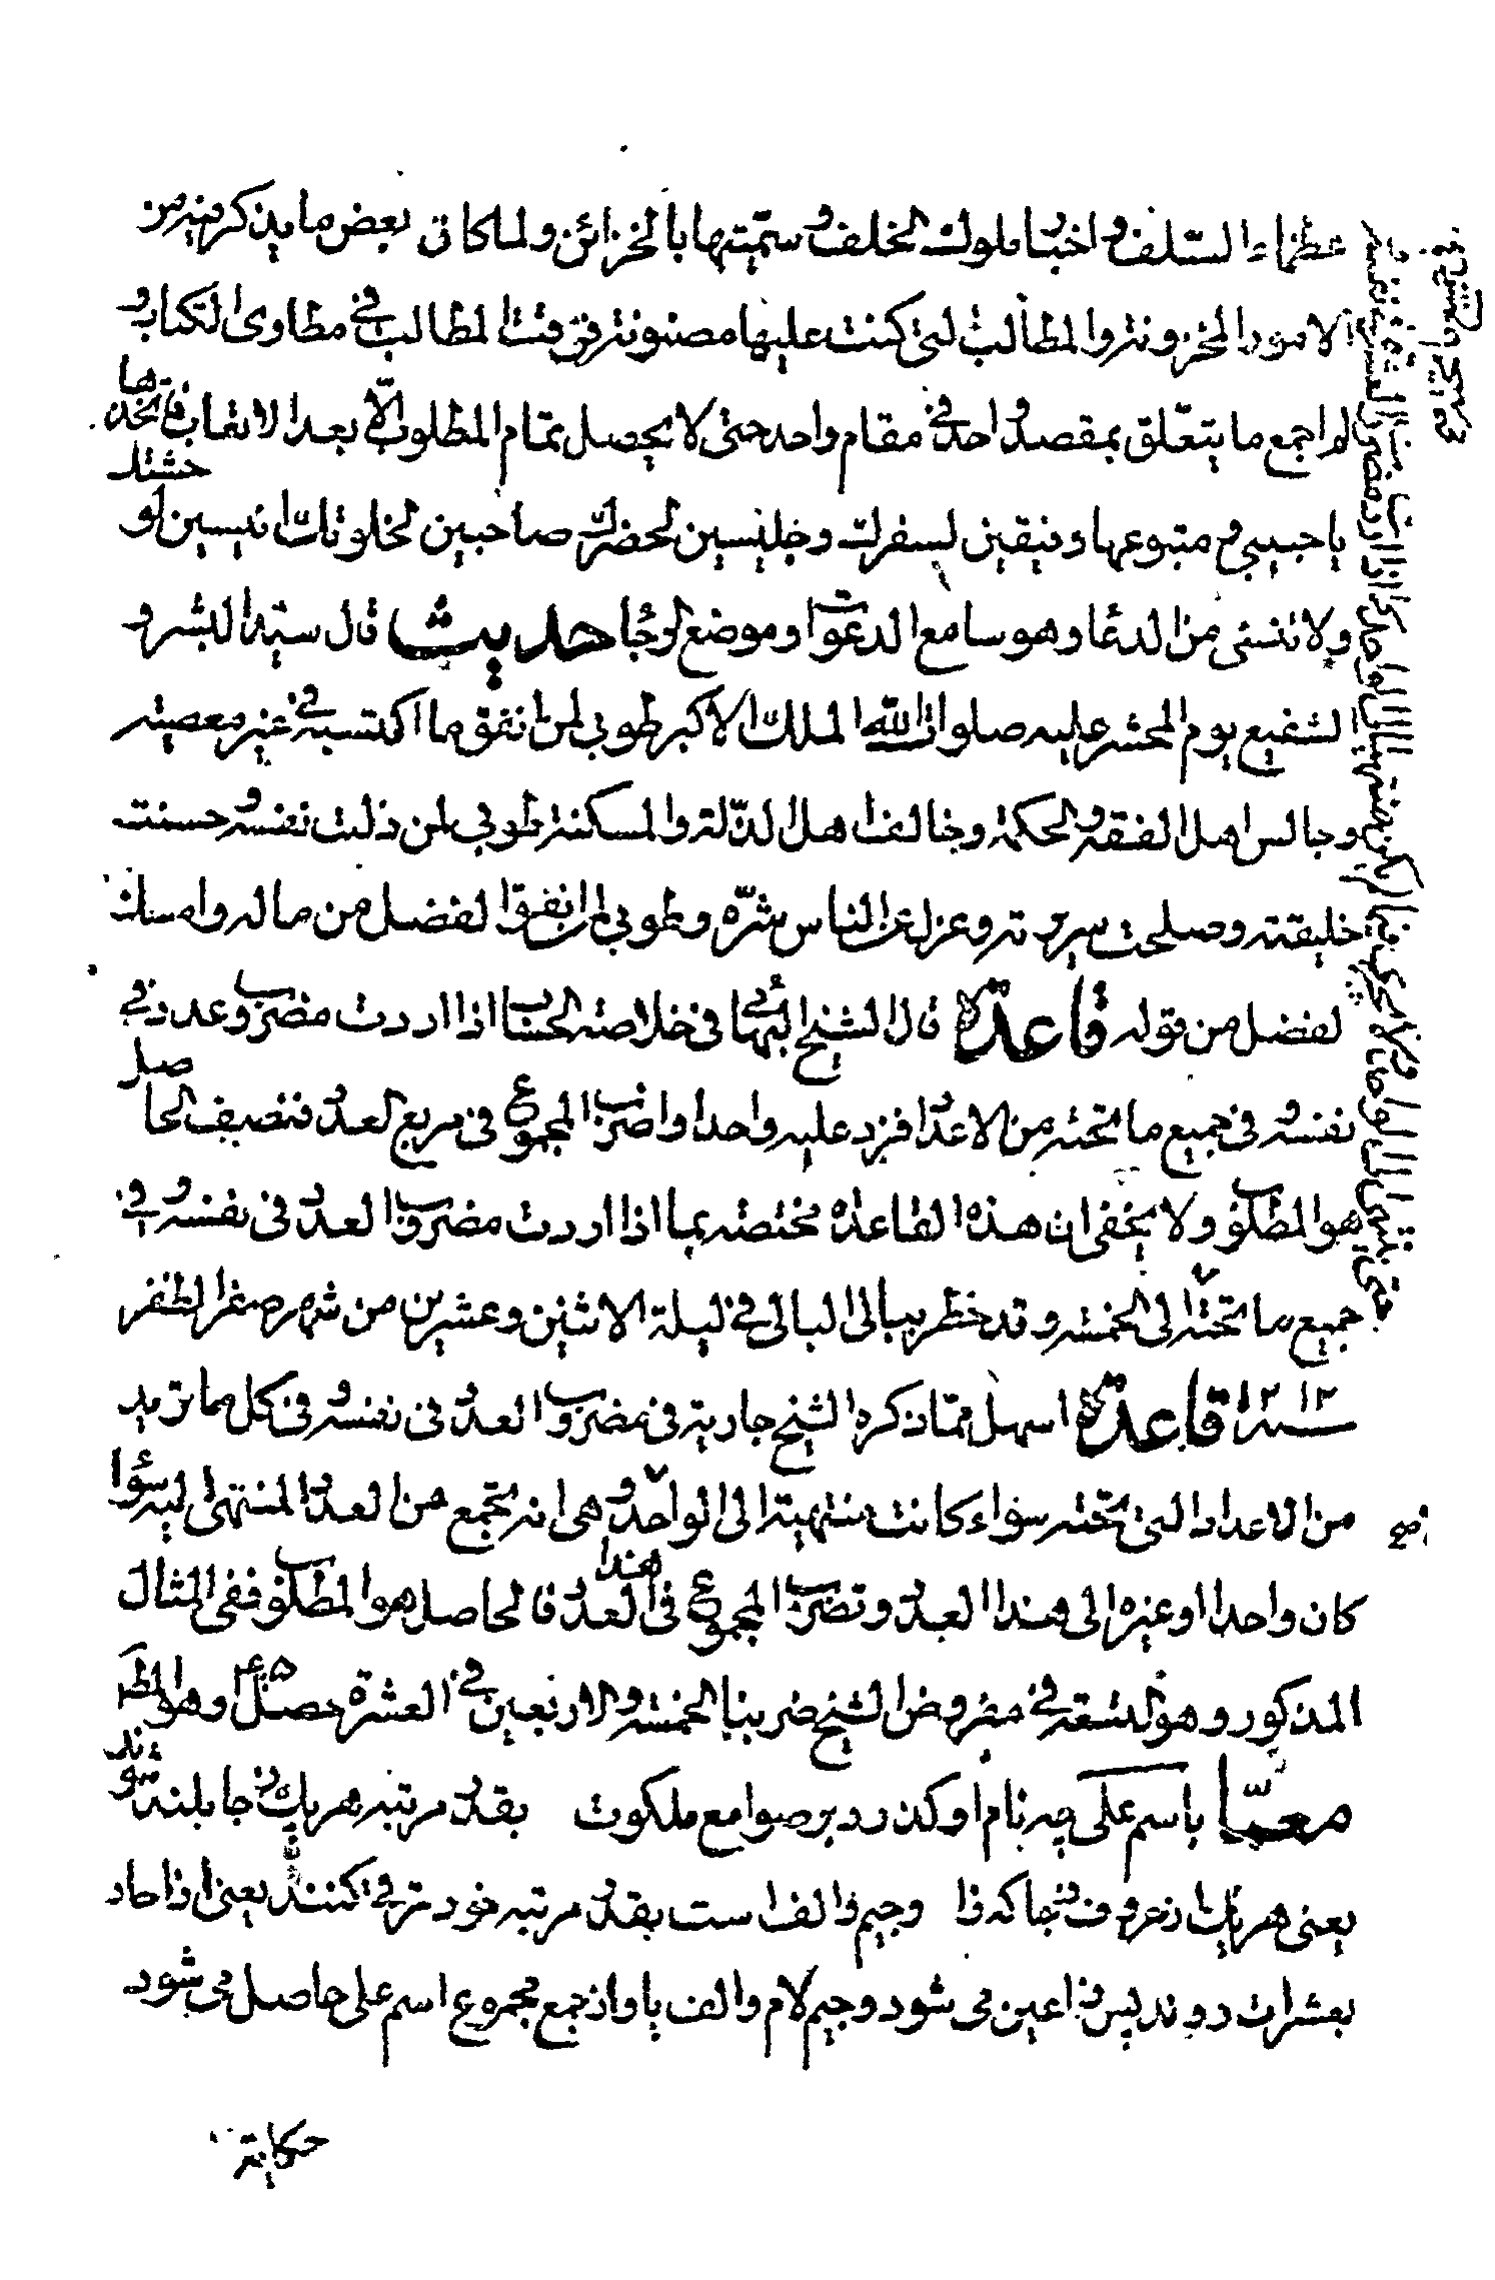 عظماء السلف و اخبار ملوك الخلف و سمّيتها بالخزائن ولما كان بعض ما يذكر فيه من
الامور المخزونة والمطالب التي كنت عليها مصنونة فرقت المطالب في مطاوى الكتاب و
لم اجمع ما يتعلّق بمقصد واحد في مقام واحد حتى لا يحصل تمام المطلوب الّا بعد الاتعاب فاتخذها
يا حبيبي متبوعها رفيقين لسفرك و جليسين لحضرك صاحبين لخلوتك انيسين لو حشتك
ولا تنسنى من الدعا وهو سامع الدعوات و موضع الرجا حديث قال سيّد البشر و
الشفيع يوم المحشر عليه صلوات الله الملك الاكبر طوبى لمن انفق ما اكتسبه في غير معصيته
و جالس اهل الفقه و الحكمة و خالف اهل الذّلة والمسكنة طوبى لمن ذلت نفسه و حسنت
خليقته و صلحت سريرته و عزل عن الناس شرّه و طوبى لمن انفق الفضل من ماله و امسك
الفضل من قوله قاعدة قال الشيخ البهائى فى خلاصة الحساب اذا اردت مضروب عدد فى
نفسه و فى جميع ما تحته من الاعداد فزد عليه واحدا و اضرب المجموع فى مربع العدد فنصيف الحاصل
هو المطلوب ولا يخفى ان هذه القاعدة مختصة بما اذا اردت مضروب العدد فى نفسه و فى
جميع ما تحته الى الخمسة و قد خطر ببالى البالى فى ليلة الاثنين و عشرين من شهر صفر المظفر
سنة ١٢١٢ قاعدة اسهل ممّا ذكره الشيخ جارية فى مضروب العدد فى نفسه و فى كل ما تريد
من الاعداد التى تحته سواء كانت منتهية الى الواحد و هى انه تجمع من العدد المنتهى اليه سواء
كان واحدا او غيره الى هذا العدد و تضرب المجموع فى هذا العدد فالحاصل هو المطلوب ففى المثال
المذكور و هو التسعة فى مفروض الشيخ ضربنا الخمسة و الاربعين فى العشرة حصل ٤٥٠ و هو المطـ
معمّا باسم على چه نام او كذرد بر صوامع ملكوت بقدر مرتبه هر يك ز جا بلند شوند
يعنى هر يك از حروف ز جا كه زا و جيم و الف است بقدر مرتبه خود ترقى كنند يعنى از احاد
بعشرات روند پس زا عين مى شود و جيم لام و الف يا و از جمع مجموع اسم على حاصل مى شود
حكاية